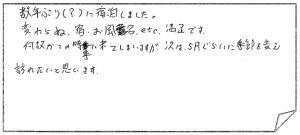 数年ぶり(?)に宿泊しました。
変わらぬ、宿・お風呂、etc. 満足です。
何故かこの時季に来てしまいますが、次は、5月ぐらいに季節を変え
訪れたいと思います。